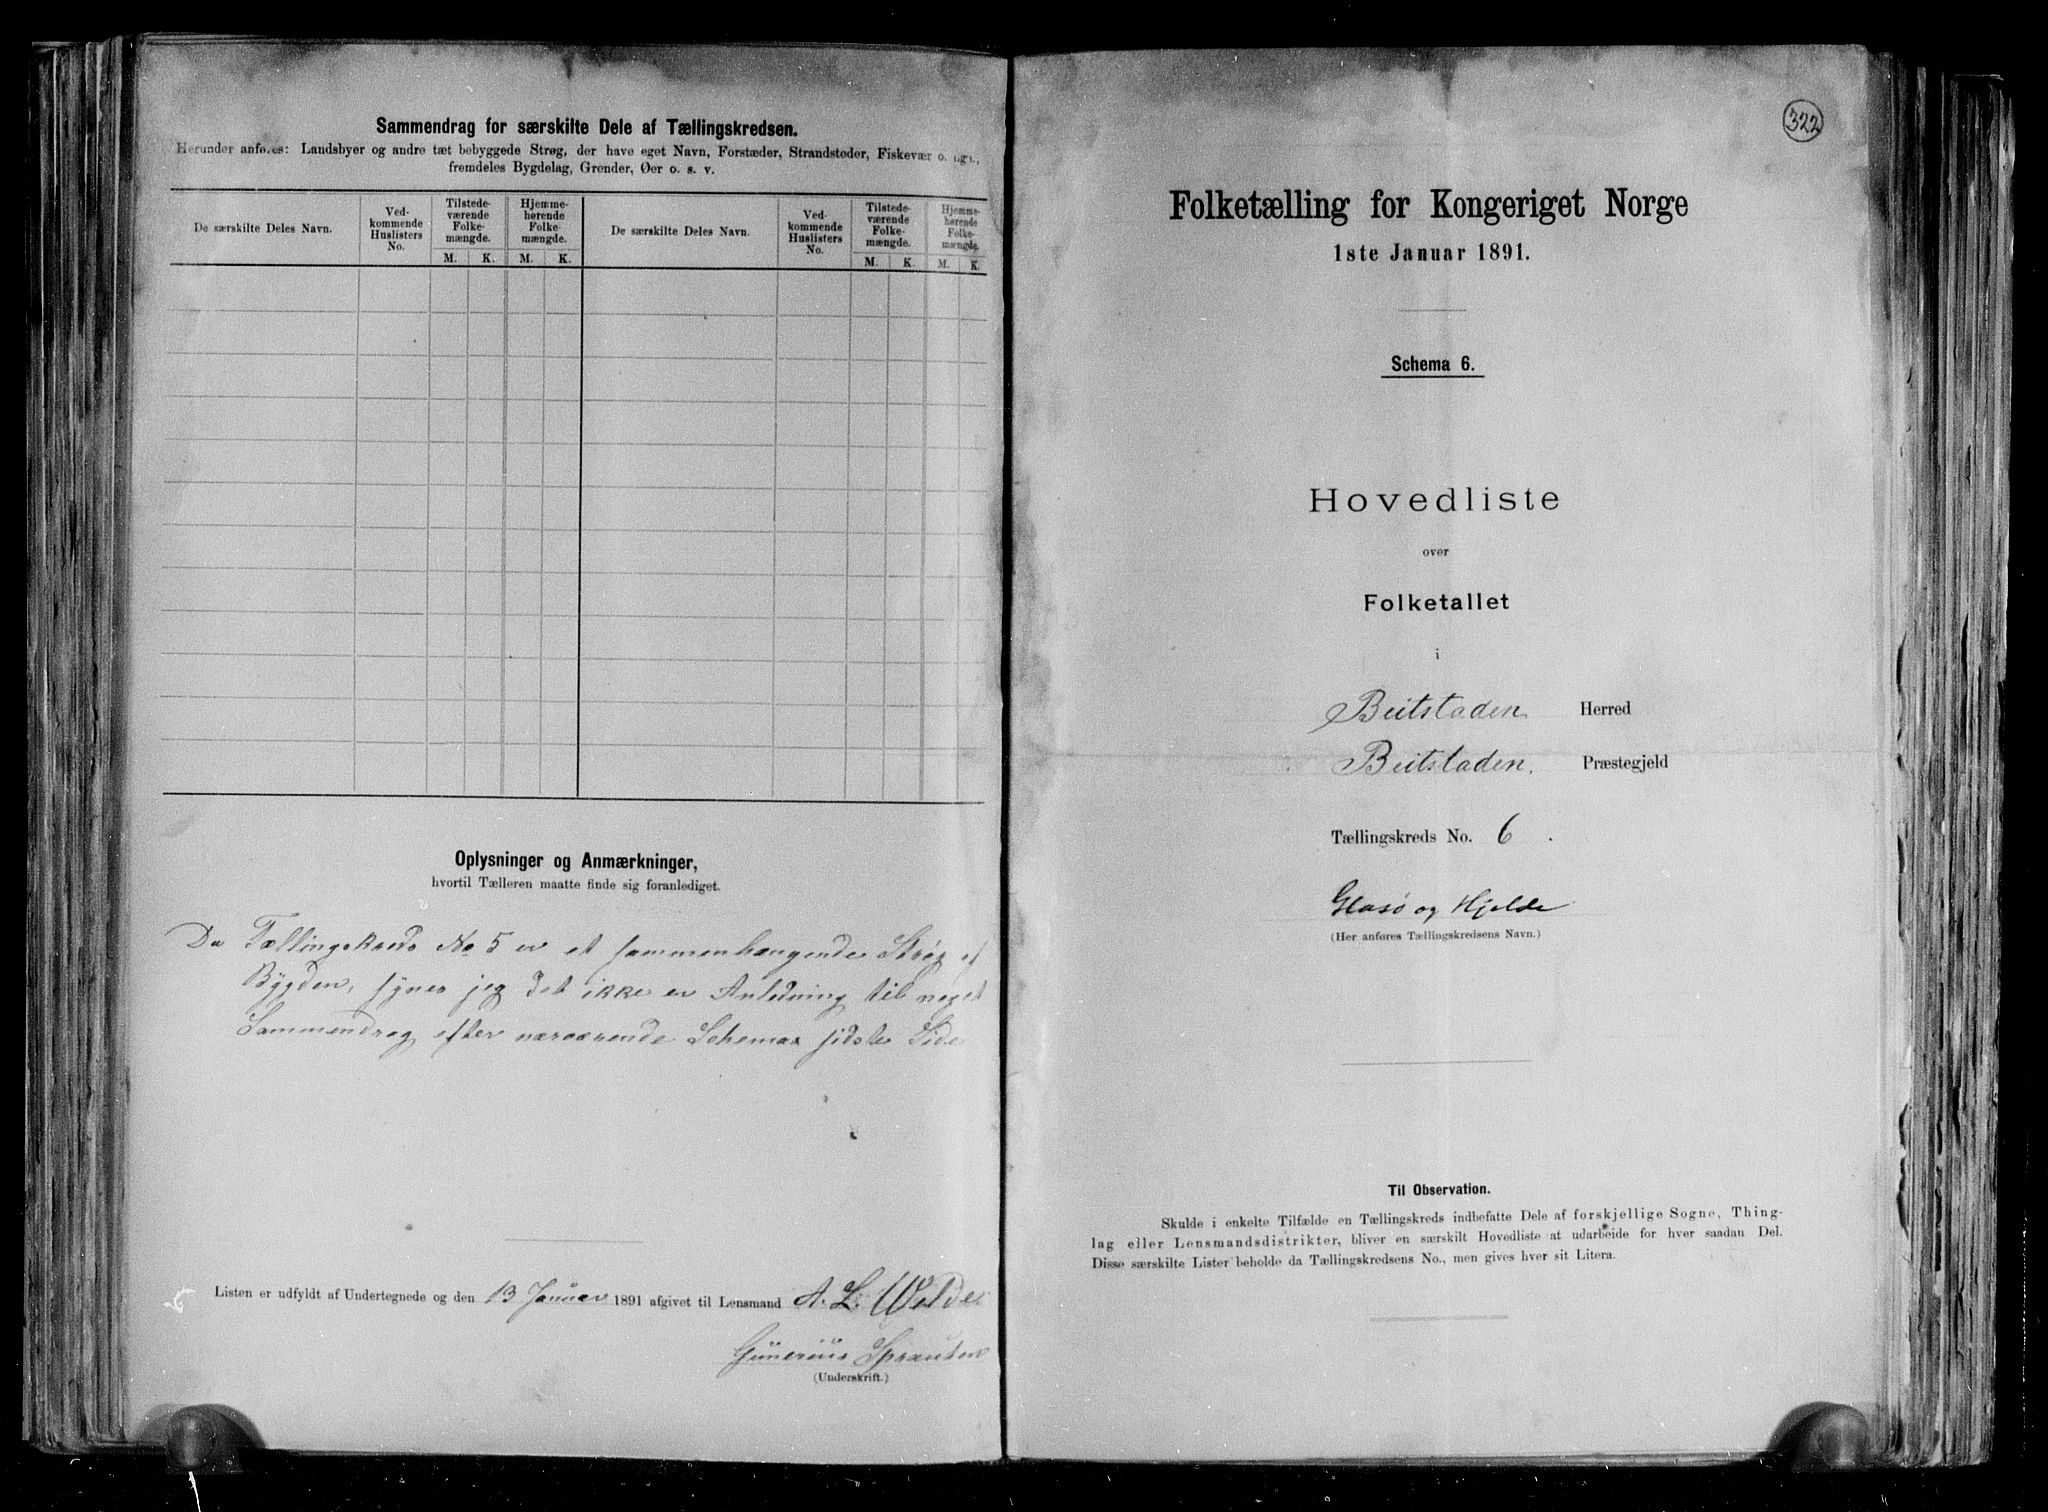 Sammendrag for særskilte Dele af Tællingskredsen.
Herunder anføres: Landsbyer og andre tæt bebyggede Strøg, der have eget Navn, Forstæder, Strandsteder, Fiskevær o. lign.,
fremdeles Bygdelag, Grender, Øer o. s. v.
De særskilte Deles Navn.
Ved-
kommende
Huslisters
No.
Tilstede-
værende
Folke-
mængde.
Hjemme-
hørende
Folke-
mængde.
De særskilte Deles Navn.
Ved-
kommende
Huslisters
No.
Tilstede-
værende
Folke-
mængde.
Hjemme-
hørende
Folke-
mængde.
M. K. M. K. M. K. M. K.
Oplysninger og Anmærkninger,
hvortil Tælleren maatte finde sig foranlediget.
Da Tællingskreds No 5 er et sammenhængende Strøg af
Bygden, synes jeg det ikke er Anledning til noget
Sammendrag efter nærværende Schemas sidste Side
Listen er udfyldt af Undertegnede og den 13 Januar 1891 afgivet til Lensmand A. L. Welde
Gunerius Sprauten
(Underskrift.)
322
Folketælling for Kongeriget Norge
1ste Januar 1891.
Schema 6.
Hovedliste
over
Folketallet
i
Beitstaden Herred
Beitstaden. Præstegjeld
Tællingskreds No. 6.
Glasø og Hjelde
(Her anføres Tællingskredsens Navn.)
Til Observation.
Skulde i enkelte Tilfælde en Tællingskreds indbefatte Dele af forskjellige Sogne, Thing-
lag eller Lensmandsdistrikter, bliver en særskilt Hovedliste at udarbeide for hver saadan Del.
Disse særskilte Lister beholde da Tællingskredsens No., men gives hver sit Litera.